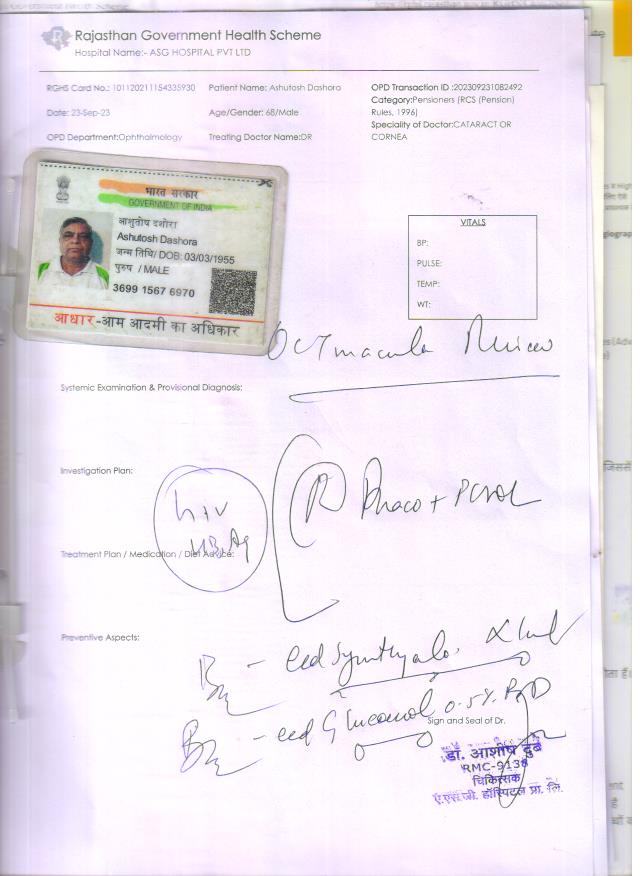 Rajasthan Government Health Scheme
Hospital Name:- ASG HOSPITAL PVT LTD
RGHS Card No.: 101120211154335930
Patient Name: Ashutosh Dashora
OPD Transaction ID :202309231082492
Category:Pensioners (RCS (Pension) Rules, 1996)
Date: 23-Sep-23
Age/Gender: 68/Male
Speciality of Doctor:CATARACT OR CORNEA
OPD Department:Ophthalmology
Treating Doctor Name:DR
भारत सरकार
GOVERNMENT OF INDIA
आशुतोष दशोरा
Ashutosh Dashora
जन्म तिथि/ DOB: 03/03/1955
पुरुष / MALE
3699 1567 6970
आधार-आम आदमी का अधिकार
VITALS
BP:
PULSE:
TEMP:
WT:
OCT macula Review
Systemic Examination & Provisional Diagnosis:
Investigation Plan:
R Phaco + PCIOL
HIV
HBsAg
Treatment Plan / Medication / Diet Advice:
Preventive Aspects:
0.5% BD
Sign and Seal of Dr.
डॉ. आशीष दुबे
RMC-9138
चिकित्सक
ए.एस.जी. हॉस्पिटल प्रा. लि.